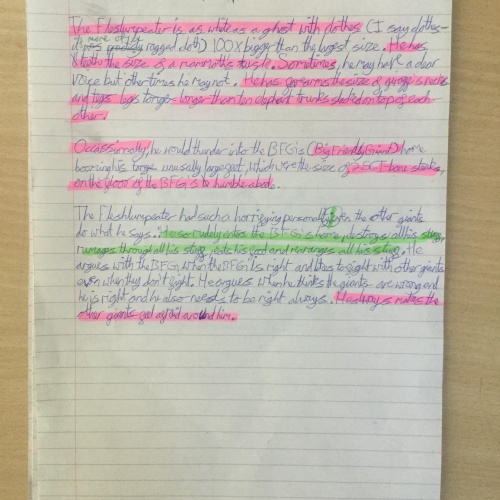 The Fleshlumpeater is as white as a ghost with clothes (I say clothes-
it was more of a ragged cloth) 100x bigger than the largest size. He has
teeth the size of a mammoths tusk. Sometimes, he may have a clear
voice but other times he may not. He has gap arms the size of giraffe's necks
and legs longer than ten elephant trunks stacked on top of each
other.
Occassionally, he would thunder into the BFG's (Big Friendly Giant) home
booming his large unusally large feet, which were the size of 2 bone stacks,
on the floor of the BFG's humble abode.
The Fleshlumpeater had such a horrifying personality, even the other giants
do what he says. He so rudely enters the BFG's home, destroys all his stuff,
rumages through all his stuff, eats his food and rearranges all his stuff. He
argues with the BFG when the BFG is right and likes to fight with other giants
even when they don't fight. He argues when he thinks the giants are wrong and
he is right and he also needs to be right always. He always makes the
other giants feel afraid around him.